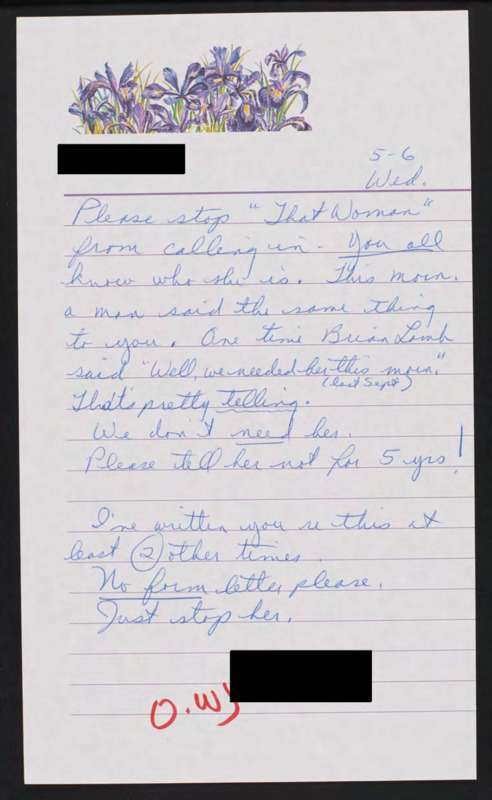 5-6
Wed.
Please stop "That Woman"
from calling in - You all
know who she is. This morn.
a man said the same thing
to you. One time Brian Lamb
said "Well, we needed her this morn."
(last Sept)
That's pretty telling.
We don't need her.
Please tell her not for 5 yrs!
I've written you re this at
least 2 other times.
No form letter please.
Just stop her.